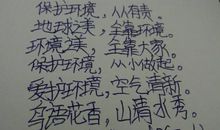 保护环境,从有责。
地球之美,全靠环境。
环境之美,全靠大家。
保护环境,从小做起。
爱护环境,空气清新。
鸟语花香,山清水秀。